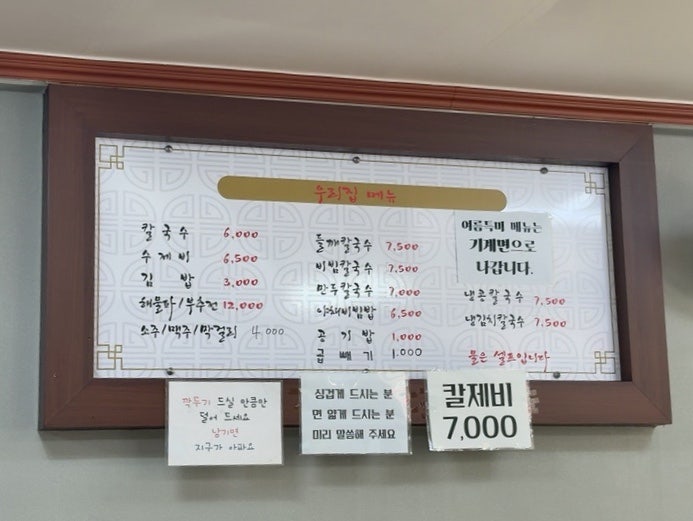 우리집 메뉴
칼국수 6,000
수제비 6,500
김밥 3,000
해물파/부추전 12,000
소주/맥주/막걸리 4,000
들깨칼국수 7,500
비빔칼국수 7,500
만두칼국수 7,000
야채비빔밥 6,500
공기밥 1,000
곱빼기 1,000
여름특미 메뉴는
기계면으로
나갑니다.
냉콩칼국수 7,500
냉김치칼국수 7,500
물은 셀프입니다
깍두기 드실 만큼만
덜어 드세요
남기면
지구가 아파요
싱겁게 드시는 분
면 얇게 드시는 분
미리 말씀해 주세요
칼제비
7,000